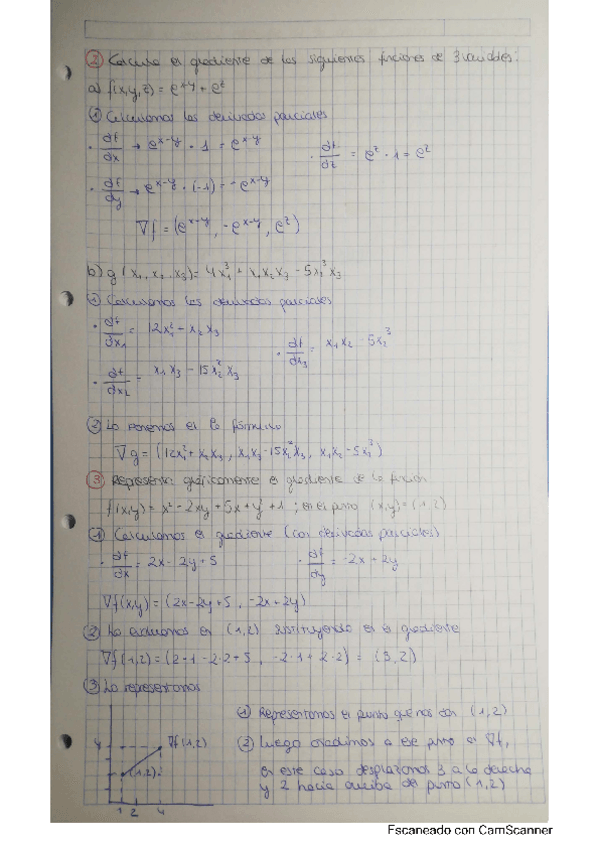 ② Calcula el gradiente de las siguientes funciones de 3 variables:
a) f(x,y,z) = e^x-y + e^z
① Calculamos las derivadas parciales
· df/dx → e^x-y · 1 = e^x-y · df/dz = e^z · 1 = e^z
· df/dy → e^x-y · (-1) = -e^x-y
∇f = (e^x-y, -e^x-y, e^z)
b) g(x₁, x₂, x₃) = 4x₁³ + x₁x₂x₃ - 5x₂³x₃
① Calculamos las derivadas parciales
· df/dx₁ = 12x₁² - x₂x₃ · df/dx₃ = x₁x₂ - 5x₂³
· df/dx₂ = x₁x₃ - 15x₂²x₃
② Lo ponemos en la fórmula
∇g = (12x₁² + x₂x₃, x₁x₃ - 15x₂²x₃, x₁x₂ - 5x₂³)
③ Representa gráficamente el gradiente de la función
f(x,y) = x² - 2xy + 5x + y² + 1; en el punto (x,y) = (1,2)
① Calculamos el gradiente (con derivadas parciales)
· df/dx = 2x - 2y + 5 · df/dy = -2x + 2y
∇f(x,y) = (2x - 2y + 5, -2x + 2y)
② Lo evaluamos en (1,2) sustituyendo en el gradiente
∇f(1,2) = (2·1 - 2·2 + 5, -2·1 + 2·2) = (3,2)
③ Lo representamos
① Representamos el punto que nos dan (1,2)
4 ∇f(1,2) ② Luego añadimos a ese punto el ∇f,
(1,2) en este caso desplazamos 3 a la derecha
y 2 hacia arriba del punto (1,2)
1 2 4
Escaneado con CamScanner